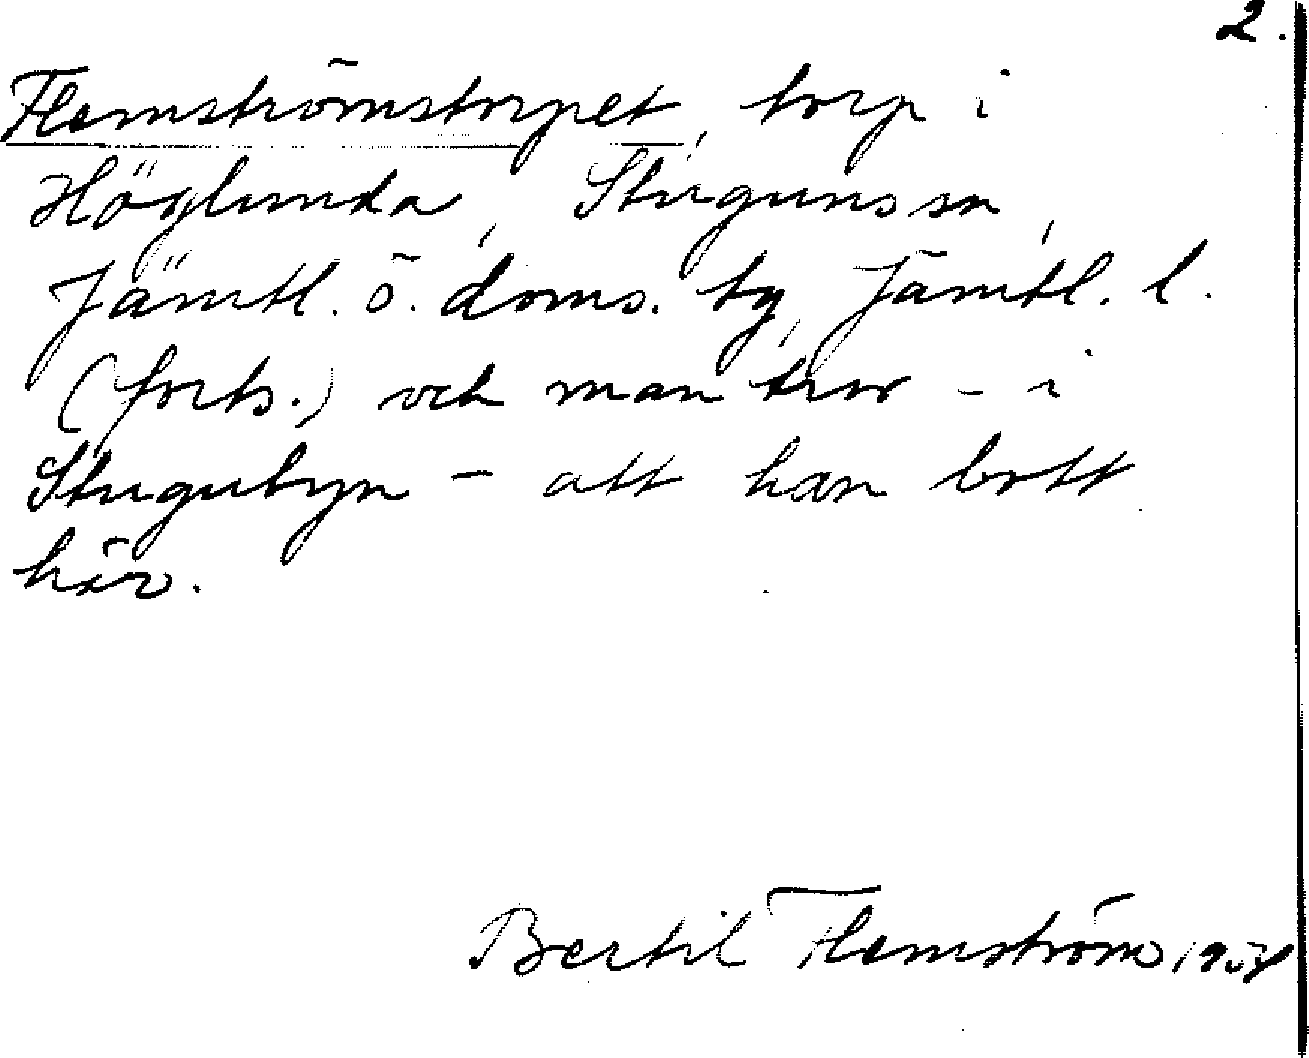 2.
Flemströmstorpet, torp i
Höglunda, Stuguns sn,
Jämtl. ö. doms. tg, Jämtl. l.
(forts.) och man tror - i
Stugubyn - att han bott
här.
Bertil Flemström